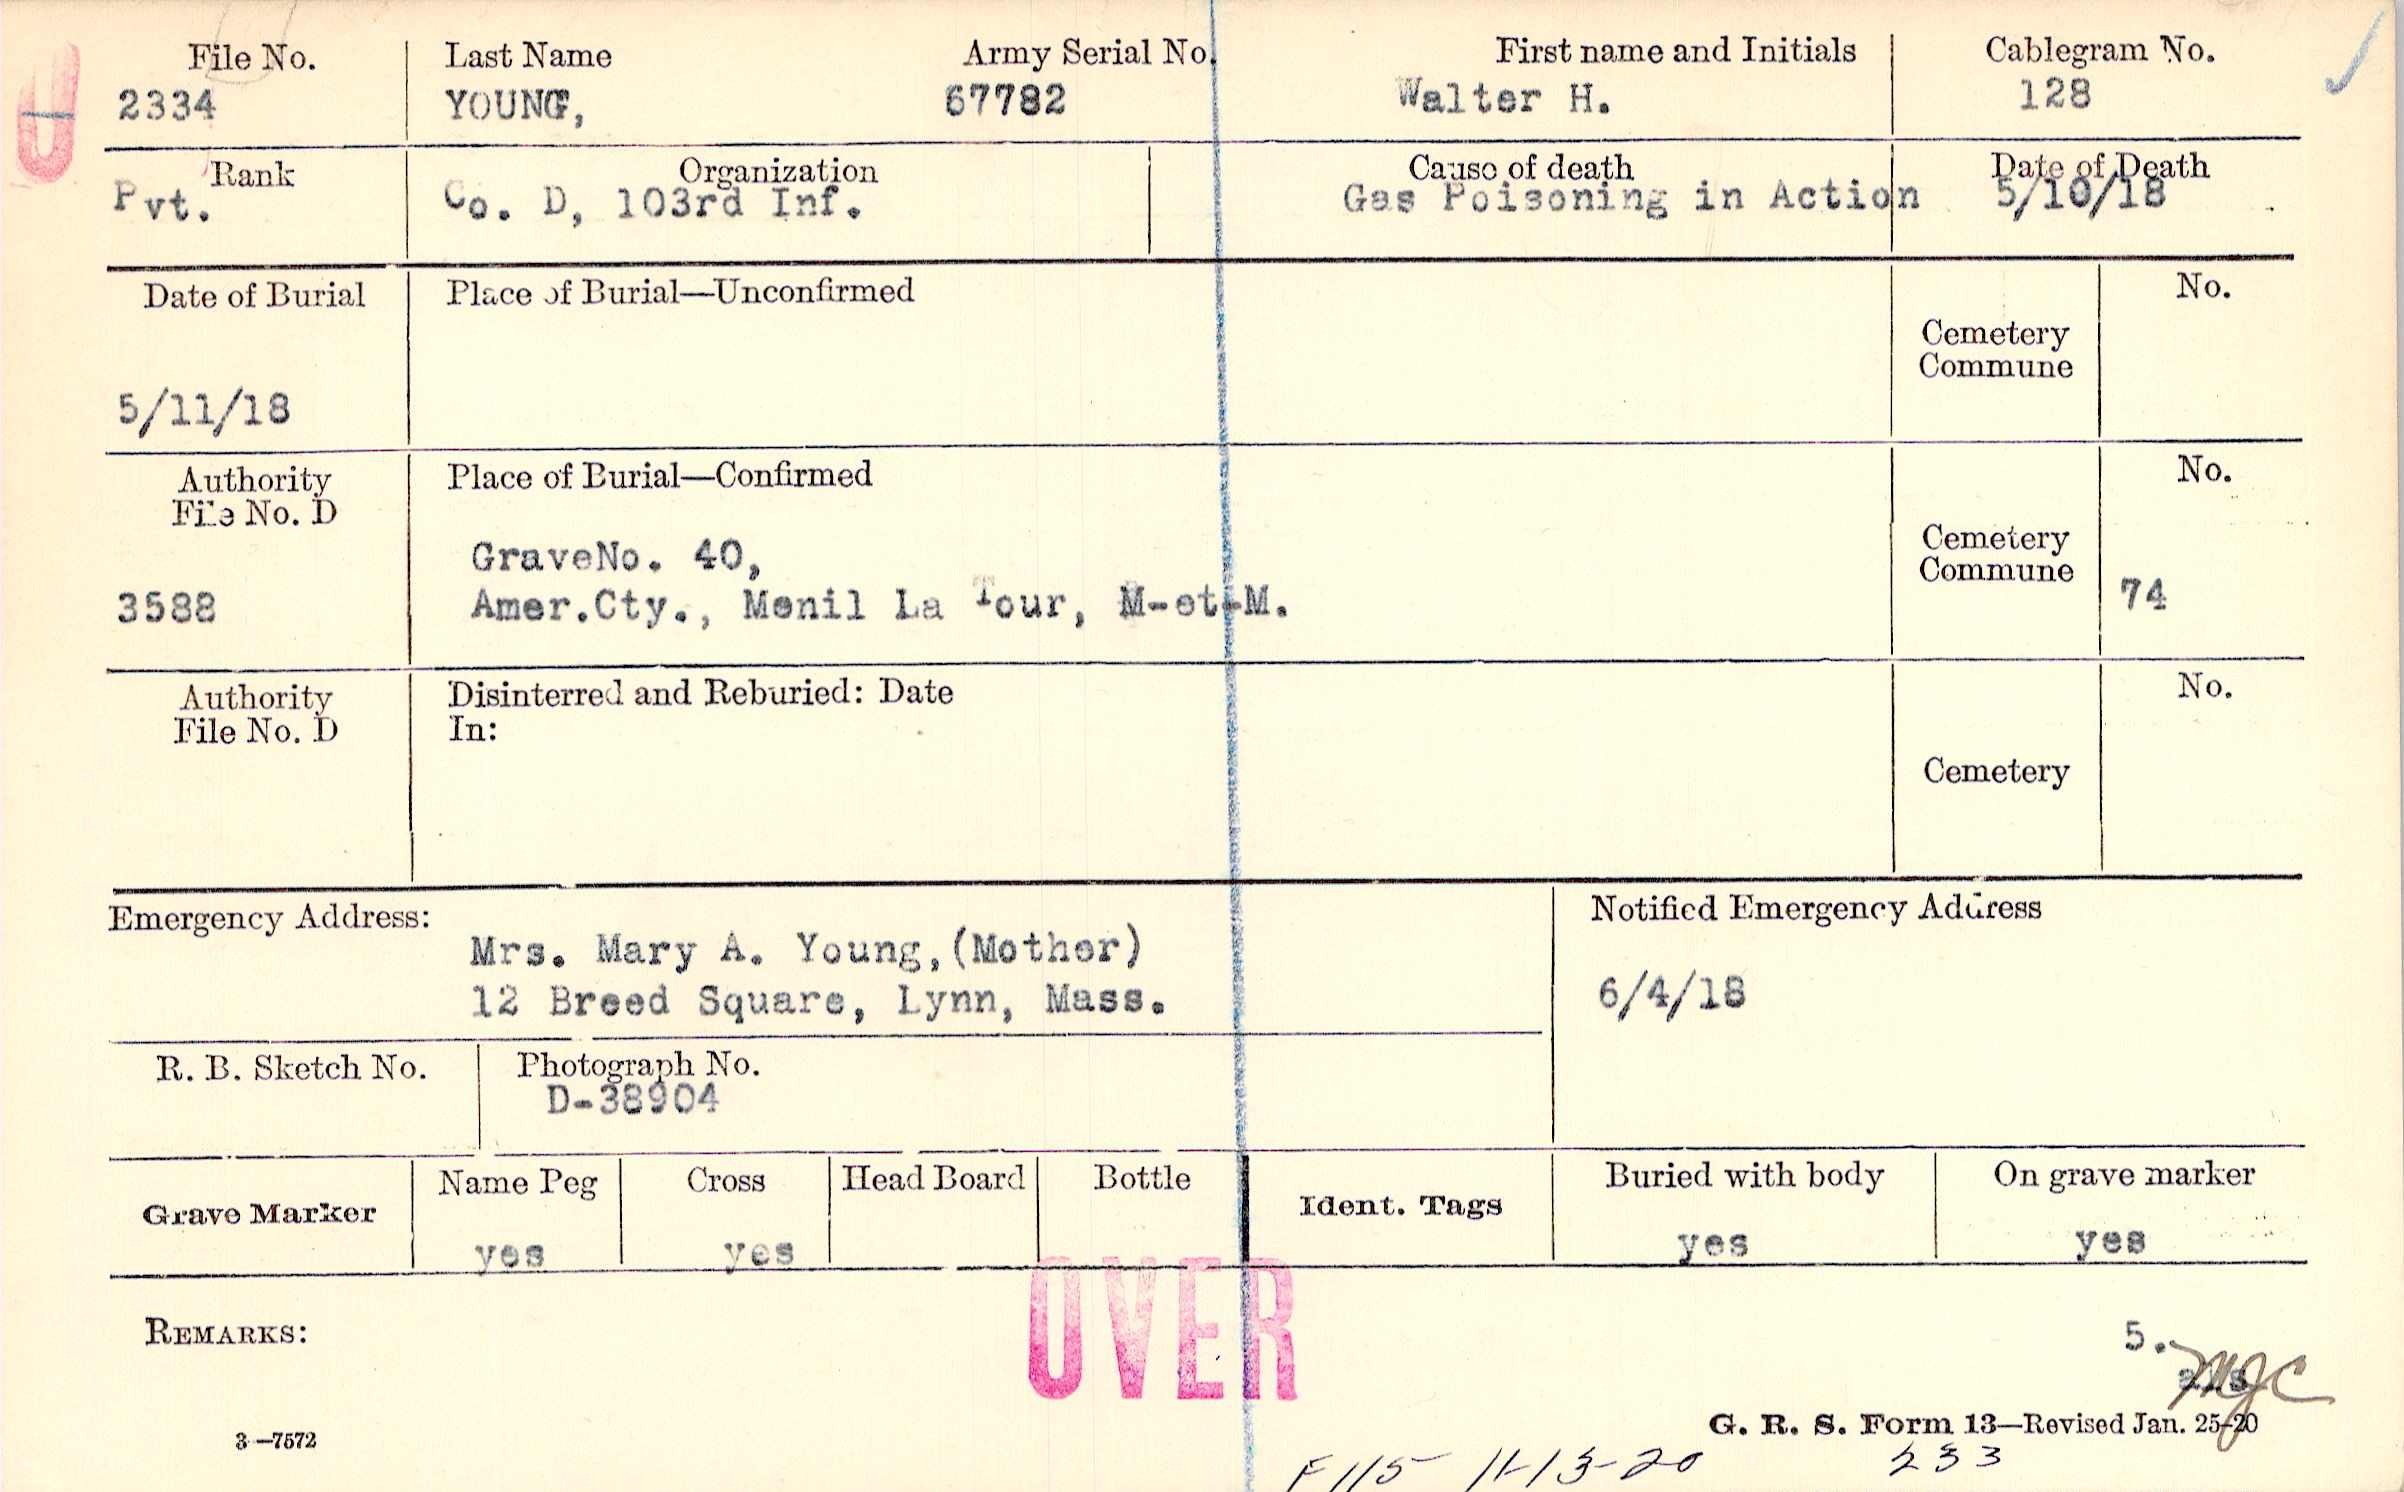 File No. Last Name Army Serial No. First name and Initials Cablegram No.
2334 YOUNG, 67782 Walter H. 128
Rank Organization Cause of death Date of Death
Pvt. Co. D, 103rd Inf. Gas Poisoning in Action 5/10/18
Date of Burial Place of Burial—Unconfirmed No.
Cemetery
Commune
5/11/18
Authority Place of Burial—Confirmed No.
File No. D
GraveNo. 40, Cemetery
Commune
3588 Amer.Cty., Menil La Tour, M-et-M. 74
Authority Disinterred and Reburied: Date No.
File No. D In:
Cemetery
Emergency Address: Notified Emergency Address
Mrs. Mary A. Young,(Mother)
12 Breed Square, Lynn, Mass. 6/4/18
R. B. Sketch No. Photograph No.
D-38904
Grave Marker Name Peg Cross Head Board Bottle Ident. Tags Buried with body On grave marker
yes yes yes yes
OVER
REMARKS: 5.
MJC
G. R. S. Form 13—Revised Jan. 25-20
3—7572
F115 11-13-20 233